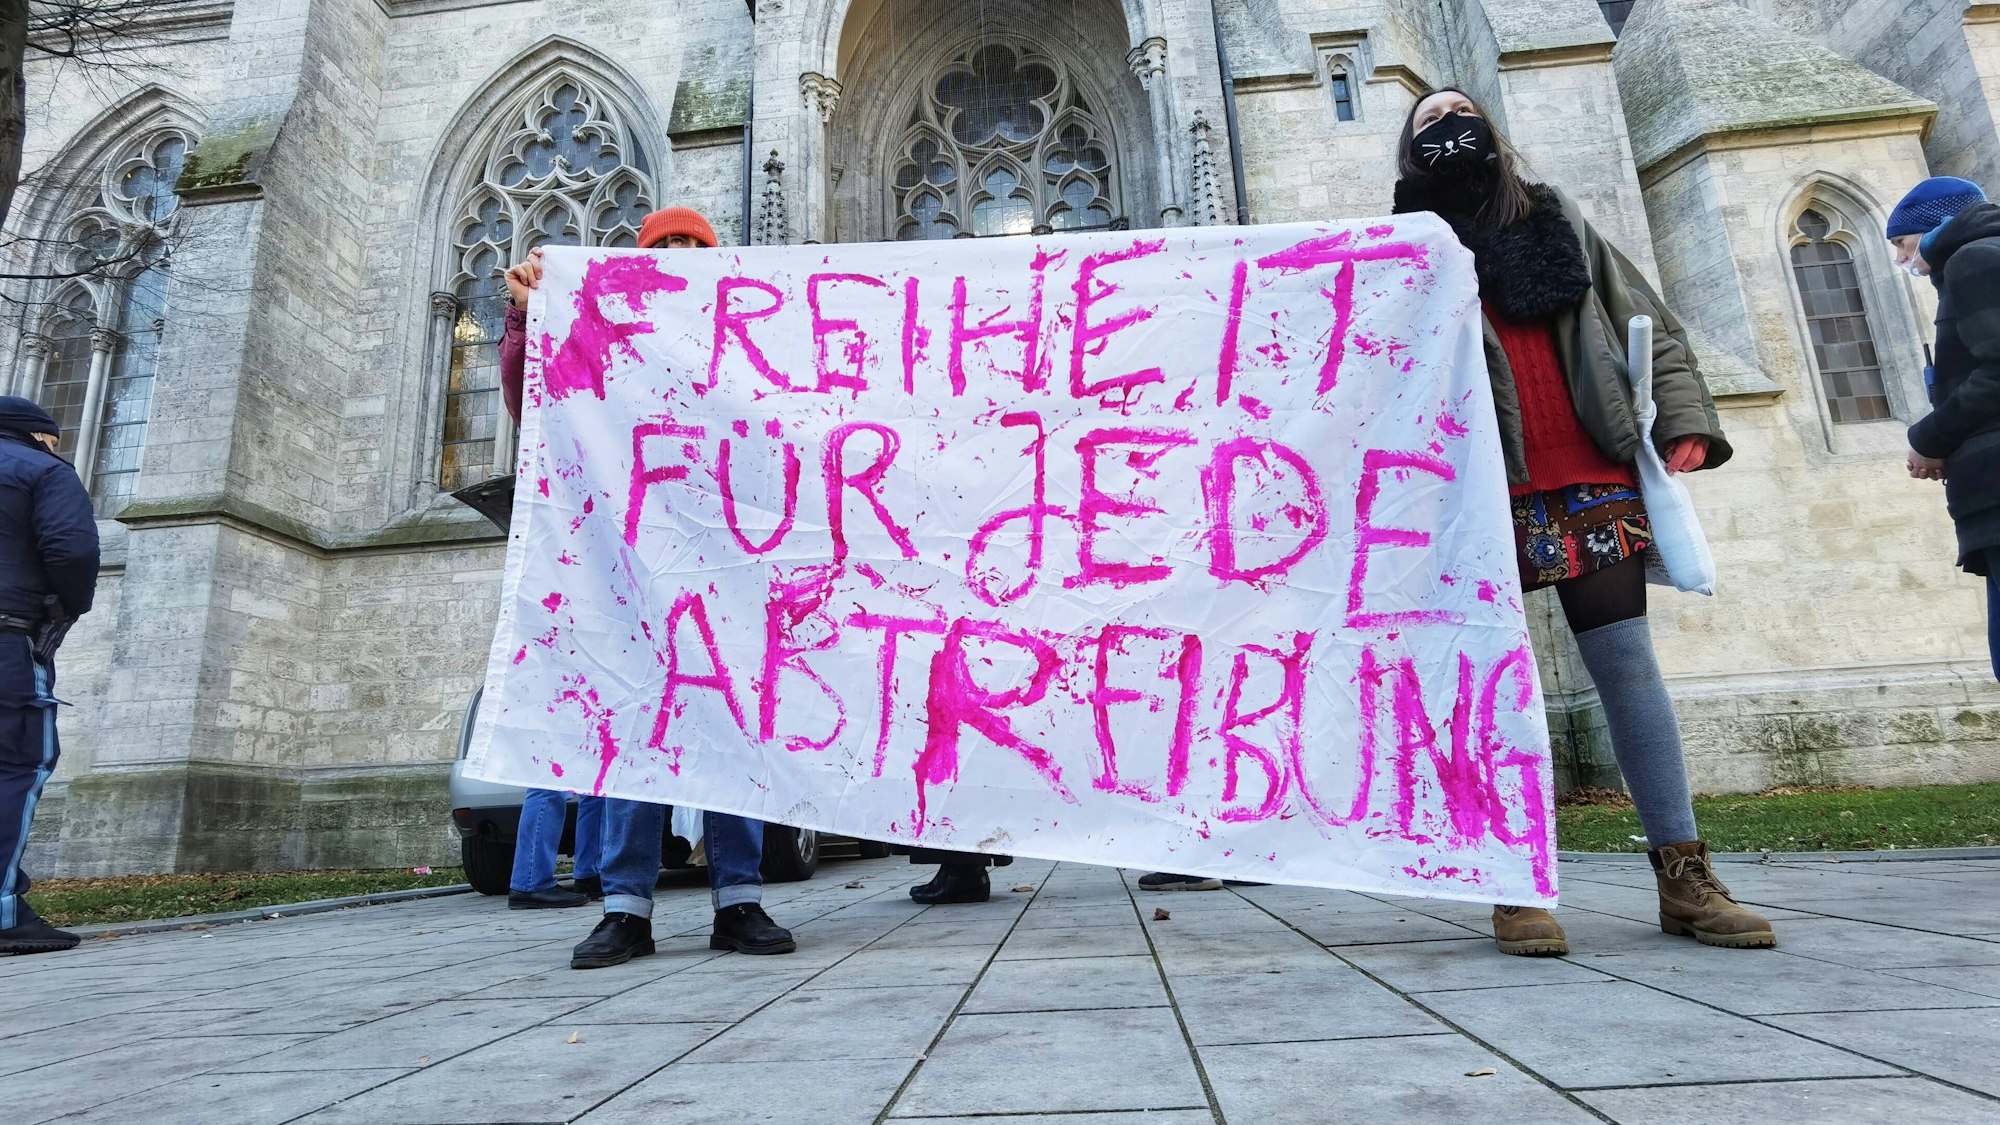 FREIHEIT
FÜR JEDE
ABTREIBUNG